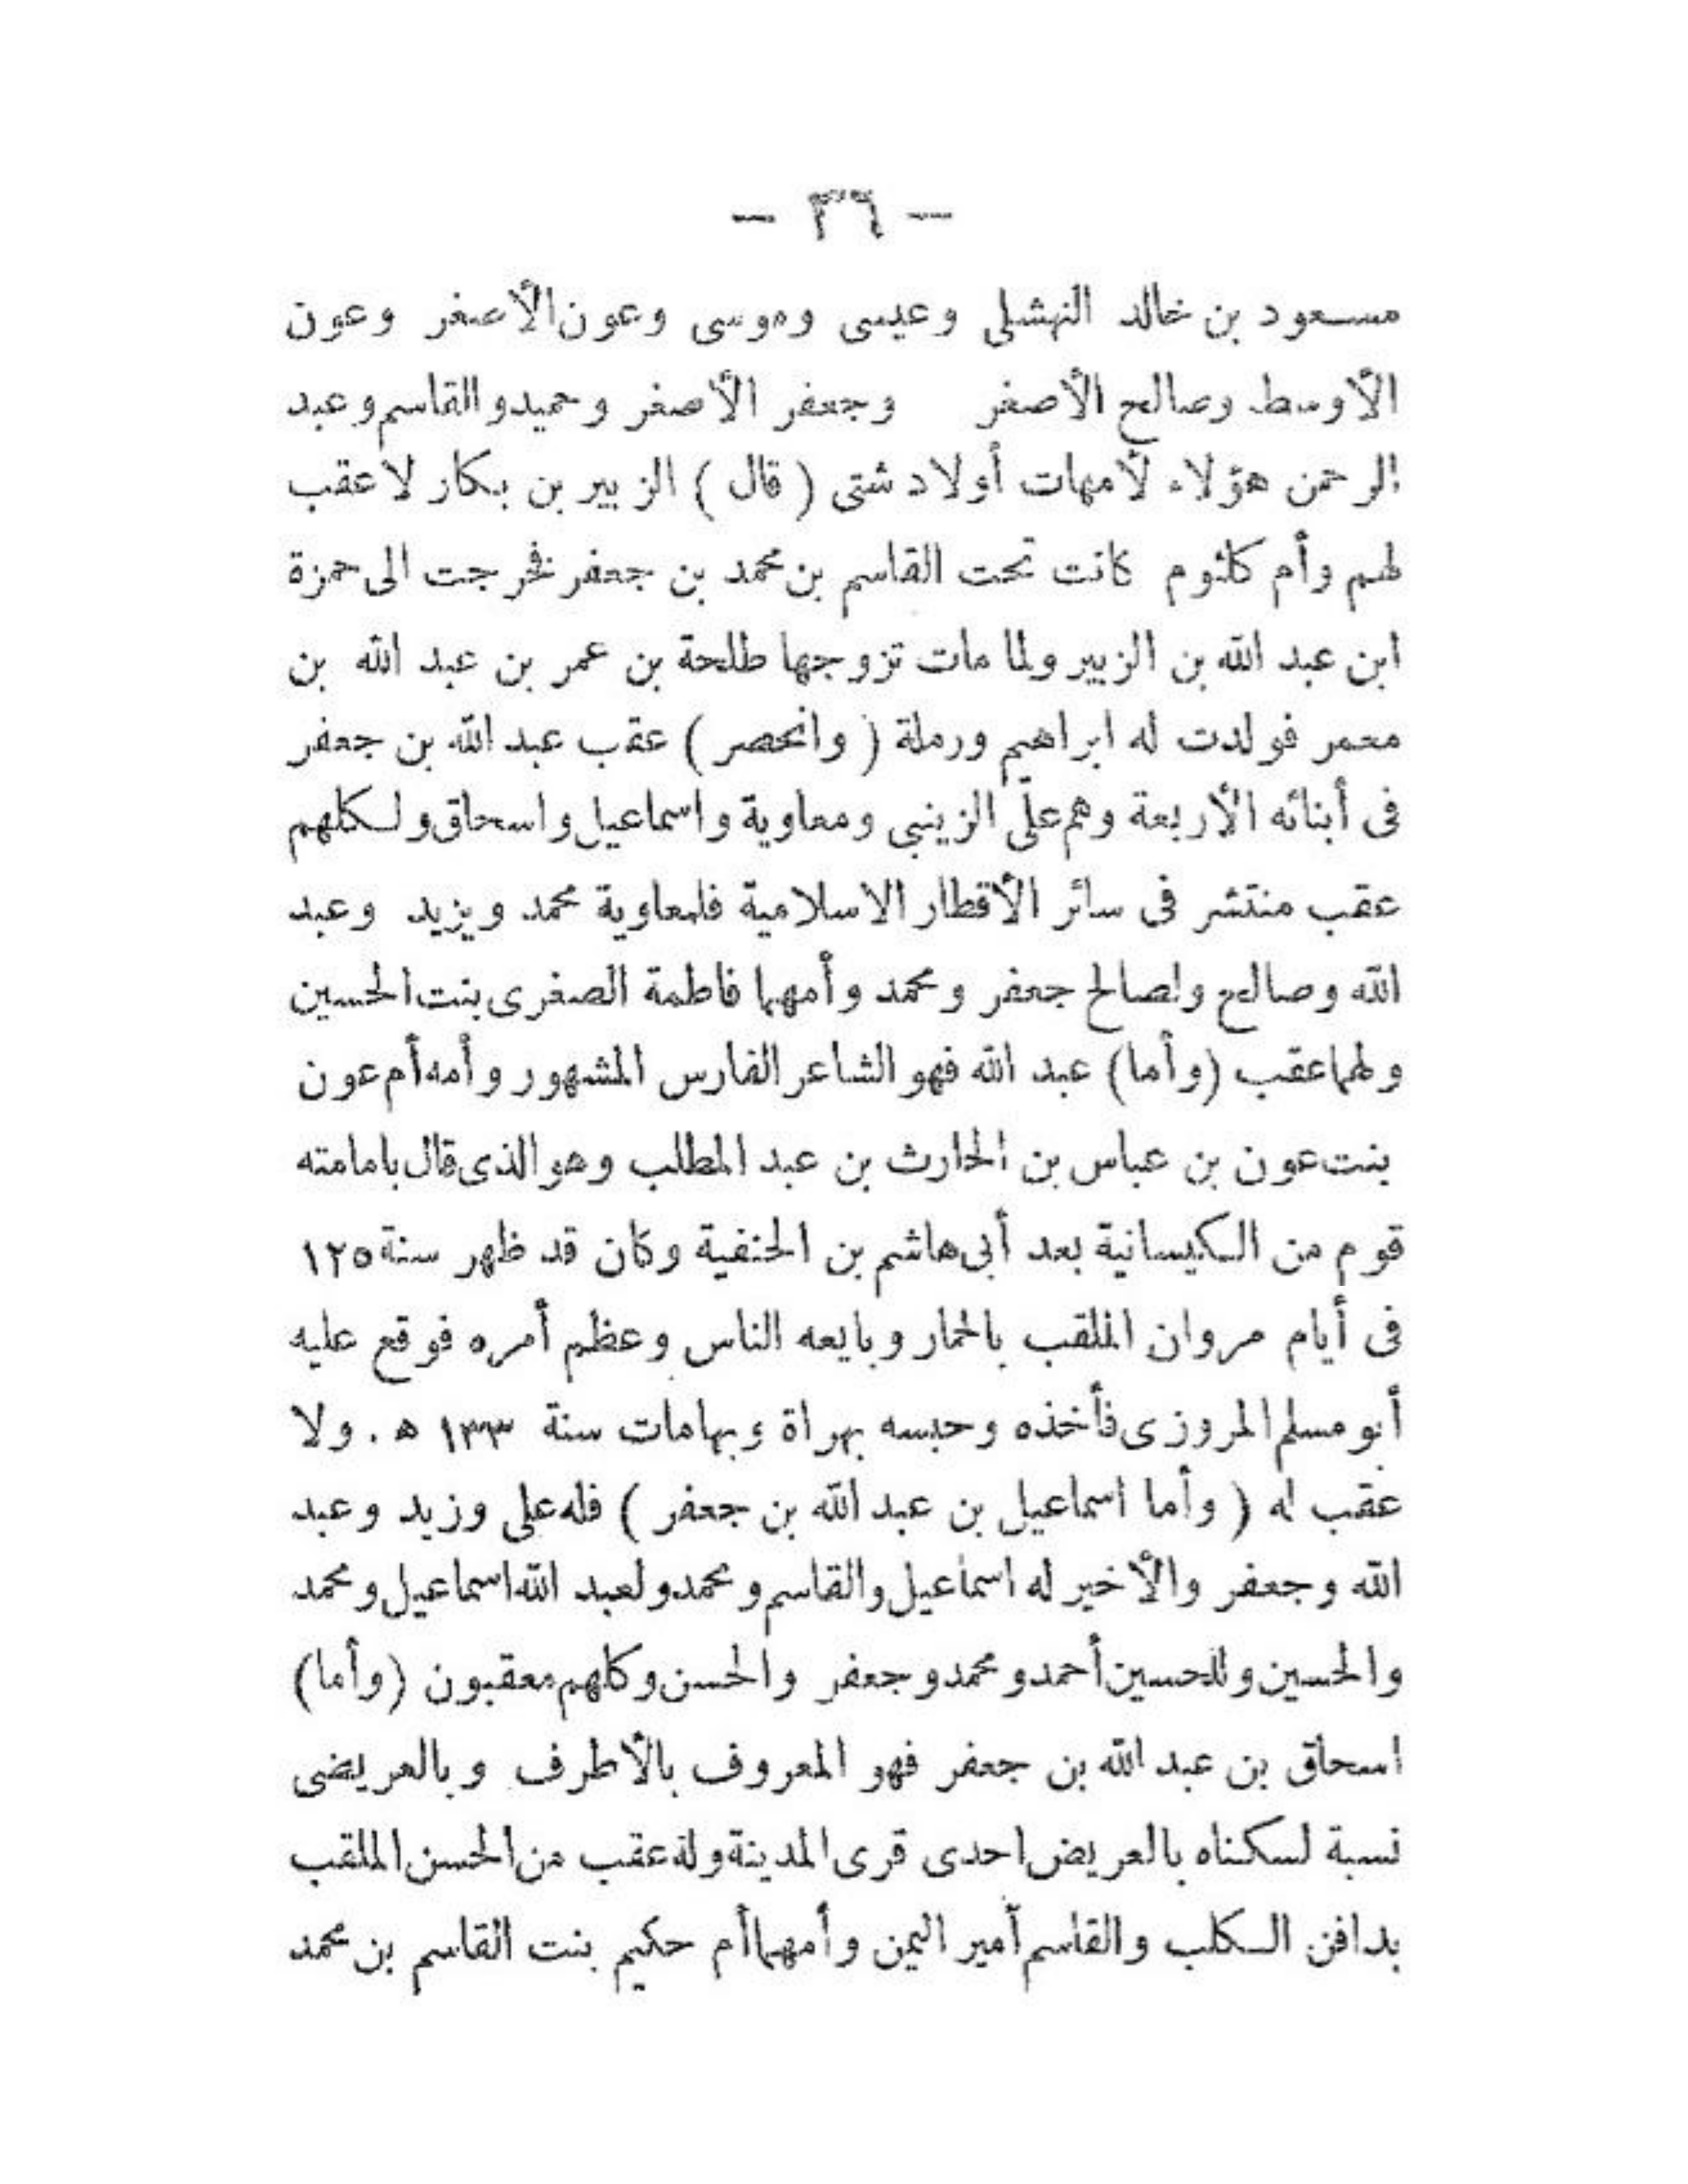 — ٣٦ —
مسعود بن خالد النهشلى وعيسى وموسى وعون الأصغر وعون
الأوسط وصالح الأصغر وجعفر الأصغر وحميد والقاسم وعبد
الرحمن هؤلاء لأمهات أولاد شتى ( قال ) الزبير بن بكار لاعقب
لهم وأم كلثوم كانت تحت القاسم بن محمد بن جعفر فخرجت الى حمزة
ابن عبد الله بن الزبير ولما مات تزوجها طلحة بن عمر بن عبد الله بن
معمر فولدت له ابراهيم ورملة ( وانحصر ) عقب عبد الله بن جعفر
فى أبنائه الأربعة وهم علّى الزينبى ومعاوية واسماعيل واسحاق ولكلهم
عقب منتشر فى سائر الأقطار الاسلامية فلمعاوية محمد ويزيد وعبد
الله وصالح ولصالح جعفر ومحمد وأمهما فاطمة الصغرى بنت الحسين
ولهما عقب (وأما) عبد الله فهو الشاعر الفارس المشهور وأمه أم عون
بنت عون بن عباس بن الحارث بن عبد المطلب وهو الذى قال بامامته
قوم من الكيسانية بعد أبى هاشم بن الحنفية وكان قد ظهر سنة ١٢٥
فى أيام مروان الملقب بالحمار وبايعه الناس وعظم أمره فوقع عليه
أبو مسلم المروزى فأخذه وحبسه بهراة وبهامات سنة ١٣٣ ه . ولا
عقب له ( وأما اسماعيل بن عبد الله بن جعفر ) فله على وزيد وعبد
الله وجعفر والأخير له اسماعيل والقاسم ومحمد ولعبد الله اسماعيل ومحمد
والحسين وللحسين أحمد ومحمد وجعفر والحسن وكلهم معقبون (وأما)
اسحاق بن عبد الله بن جعفر فهو المعروف بالأطرف وبالعريضى
نسبة لسكناه بالعريض احدى قرى المدينة وله عقب من الحسن الملقب
بدافن الكلب والقاسم أمير اليمن وأمهما أم حكيم بنت القاسم بن محمد